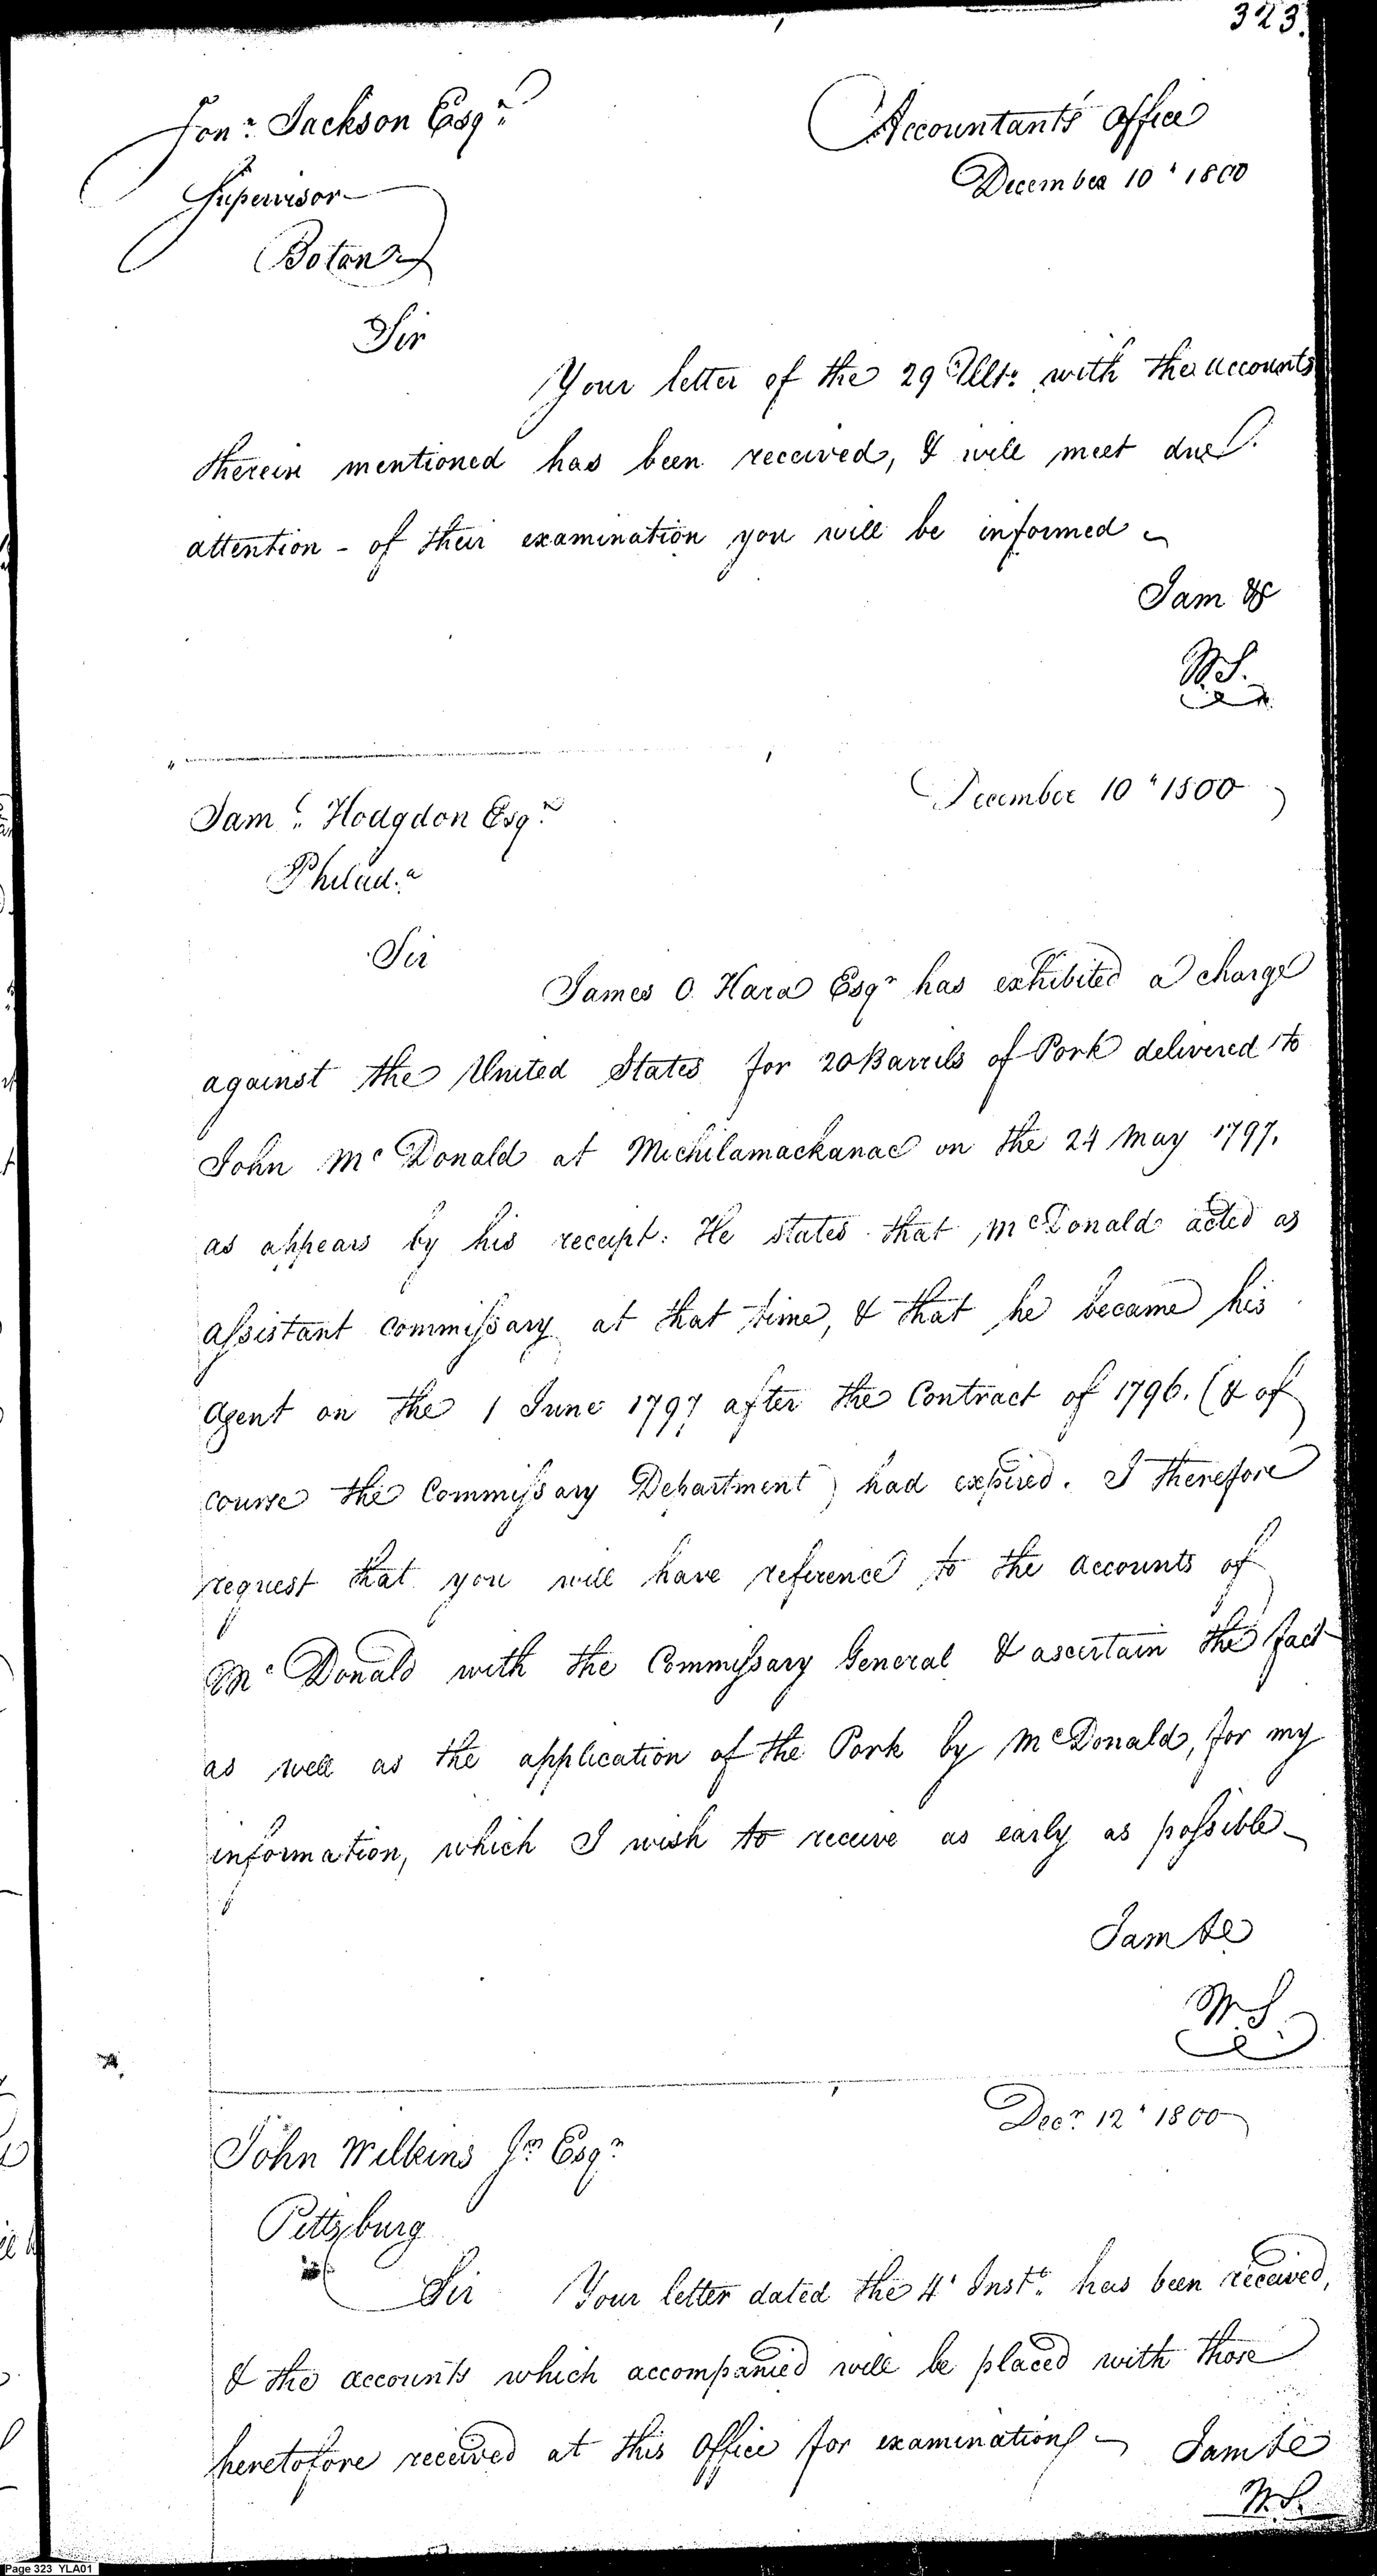 323.
Jonn. Jackson Esqr.
Accountants Office
December 10 " 1800
Supervisor
Boton
Sir
Your letter of the 29 Ulto. with the accounts
therein mentioned has been received, & will meet due
attention - of their examination you will be informed
I am &c
W.S.
December 10 " 1800
Saml. Hodgdon Esqr.
Philad.a
Sir
James O. Hara Esqr has exhibited a charge
against the United States for 20 Barrils of Pork delivered to
John Mc Donald at Michilamackanac on the 24 May 1797.
as appears by his receipt: He states that McDonald acted as
assistant commissary at that time, & that he became his
agent on the 1 June 1797 after the Contract of 1796. (& of
course the Commissary Department) had expired. I therefore
request that you will have reference to the accounts of
Mc Donald with the Commissary General & ascertain the fact
as well as the application of the Pork by McDonald, for my
information, which I wish to receive as early as possible
I am &c
W S
Decr. 12 " 1800
John Wilkins Jnr Esqr
Pittsburg
Sir Your letter dated the 4' Inst. has been received,
& the accounts which accompanied will be placed with those
heretofore received at this Office for examination I am &c
W.S.
Page 323 YLA01